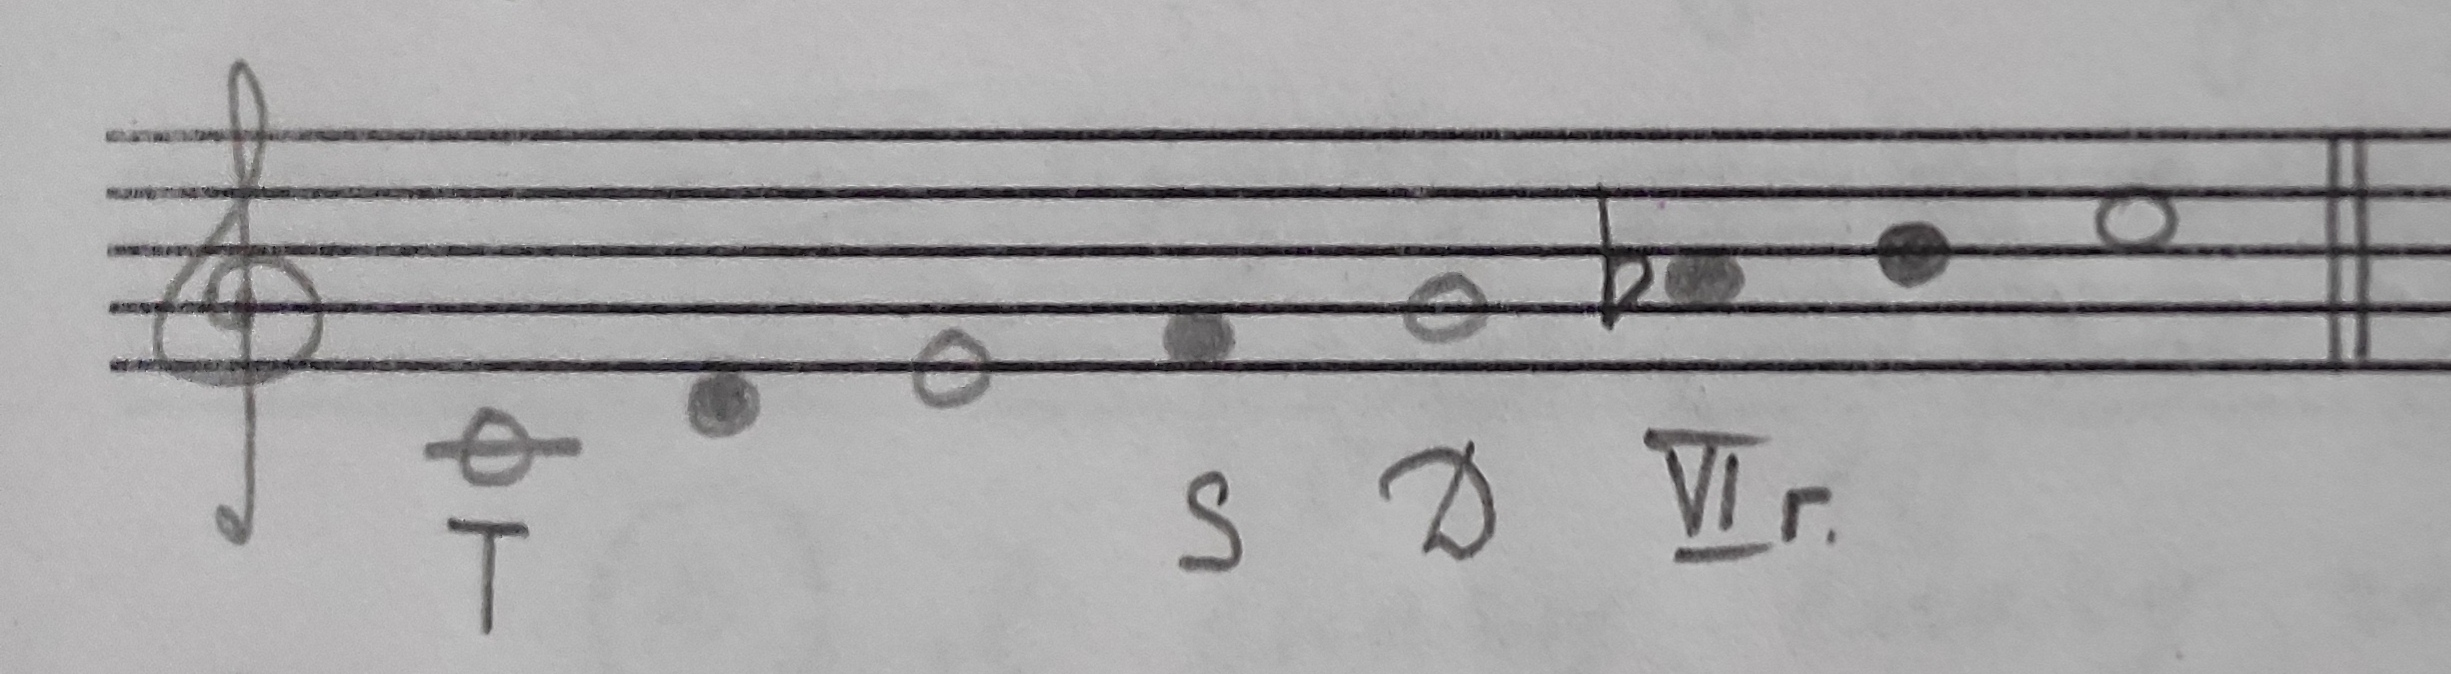 T S D VI г.